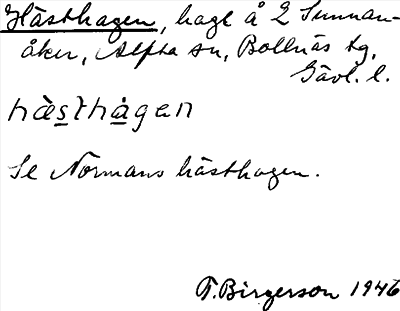 Hästhagen, hage å 2 Sunnan-
åker, Alfta sn, Bollnäs tg,
Gävl. l.
hàsthågen
Se Normans hästhagen.
T. Birgerson 1946